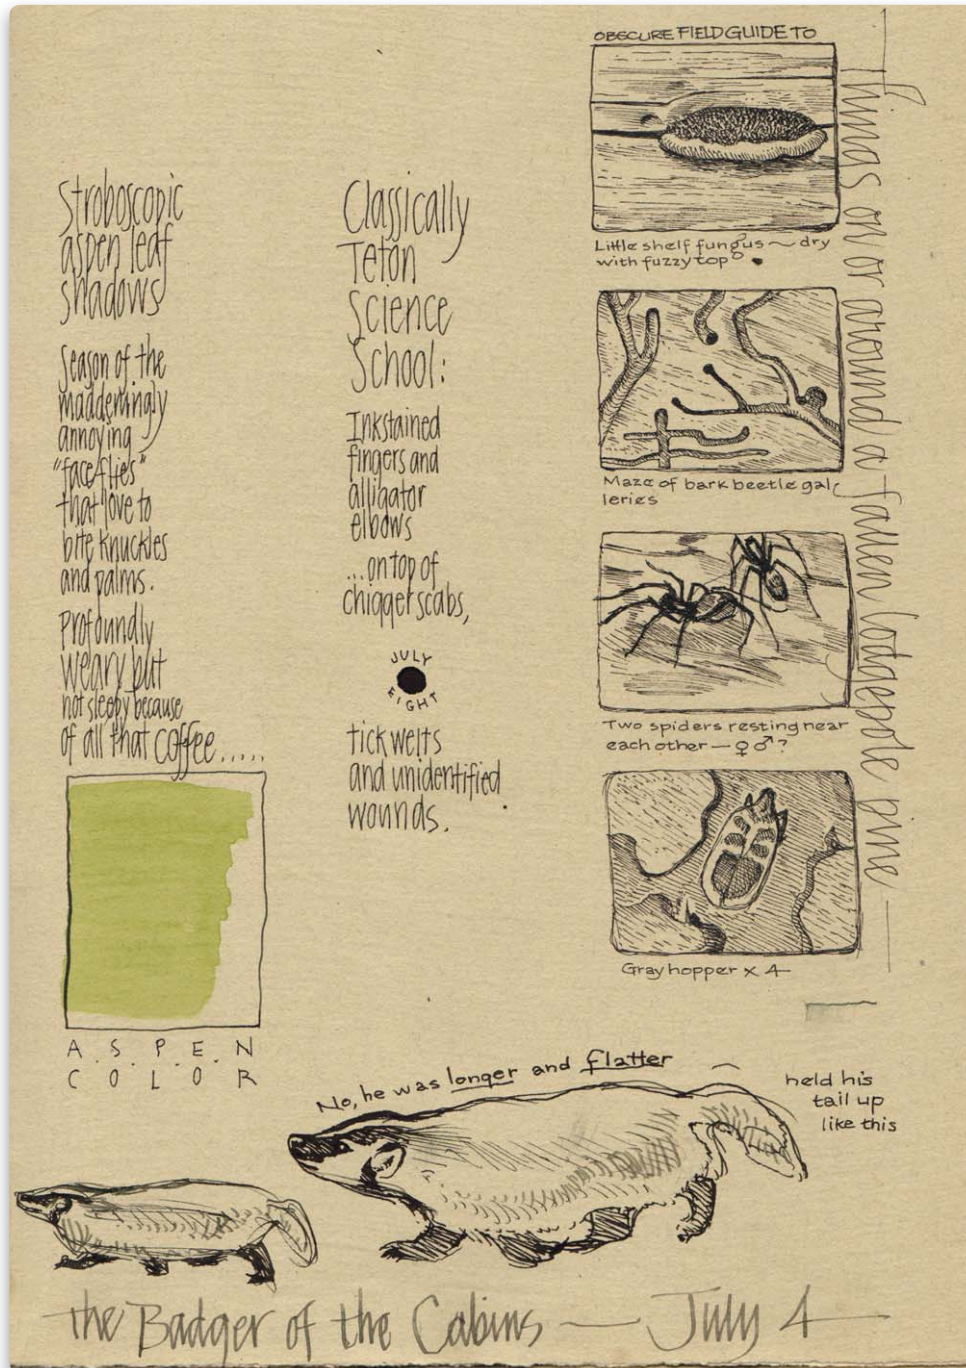 Stroboscopic
aspen leaf
shadows
Season of the
maddeningly
annoying
"face flies"
that love to
bite knuckles
and palms.
Profoundly
weary but
not sleepy because
of all that coffee.....
ASPEN
COLOR
Classically
Teton
Science
School:
Inkstained
fingers and
alligator
elbows
...on top of
chigger scabs,
JULY
EIGHT
tick welts
and unidentified
wounds.
OBSCURE FIELD GUIDE TO
Things on or around a fallen lodgepole pine
Little shelf fungus ~ dry
with fuzzy top
Maze of bark beetle gal
leries
Two spiders resting near
each other — ♀ ♂ ?
Gray hopper x 4
No, he was longer and flatter
held his
tail up
like this
The Badger of the Cabins — July 4